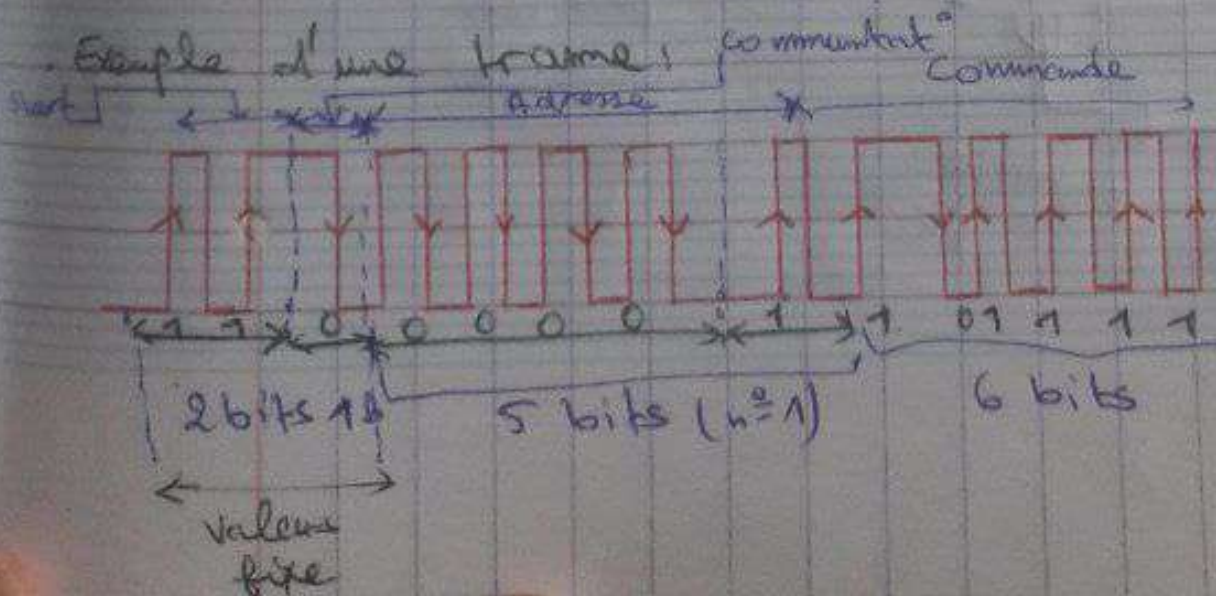 Exemple d'une trame : commutat°
Commande
start
Adresse
1 1 0 0 0 0 0 1 1 0 1 1 1 1 1
2 bits 11 5 bits (n° 1) 6 bits
valeur
fixe